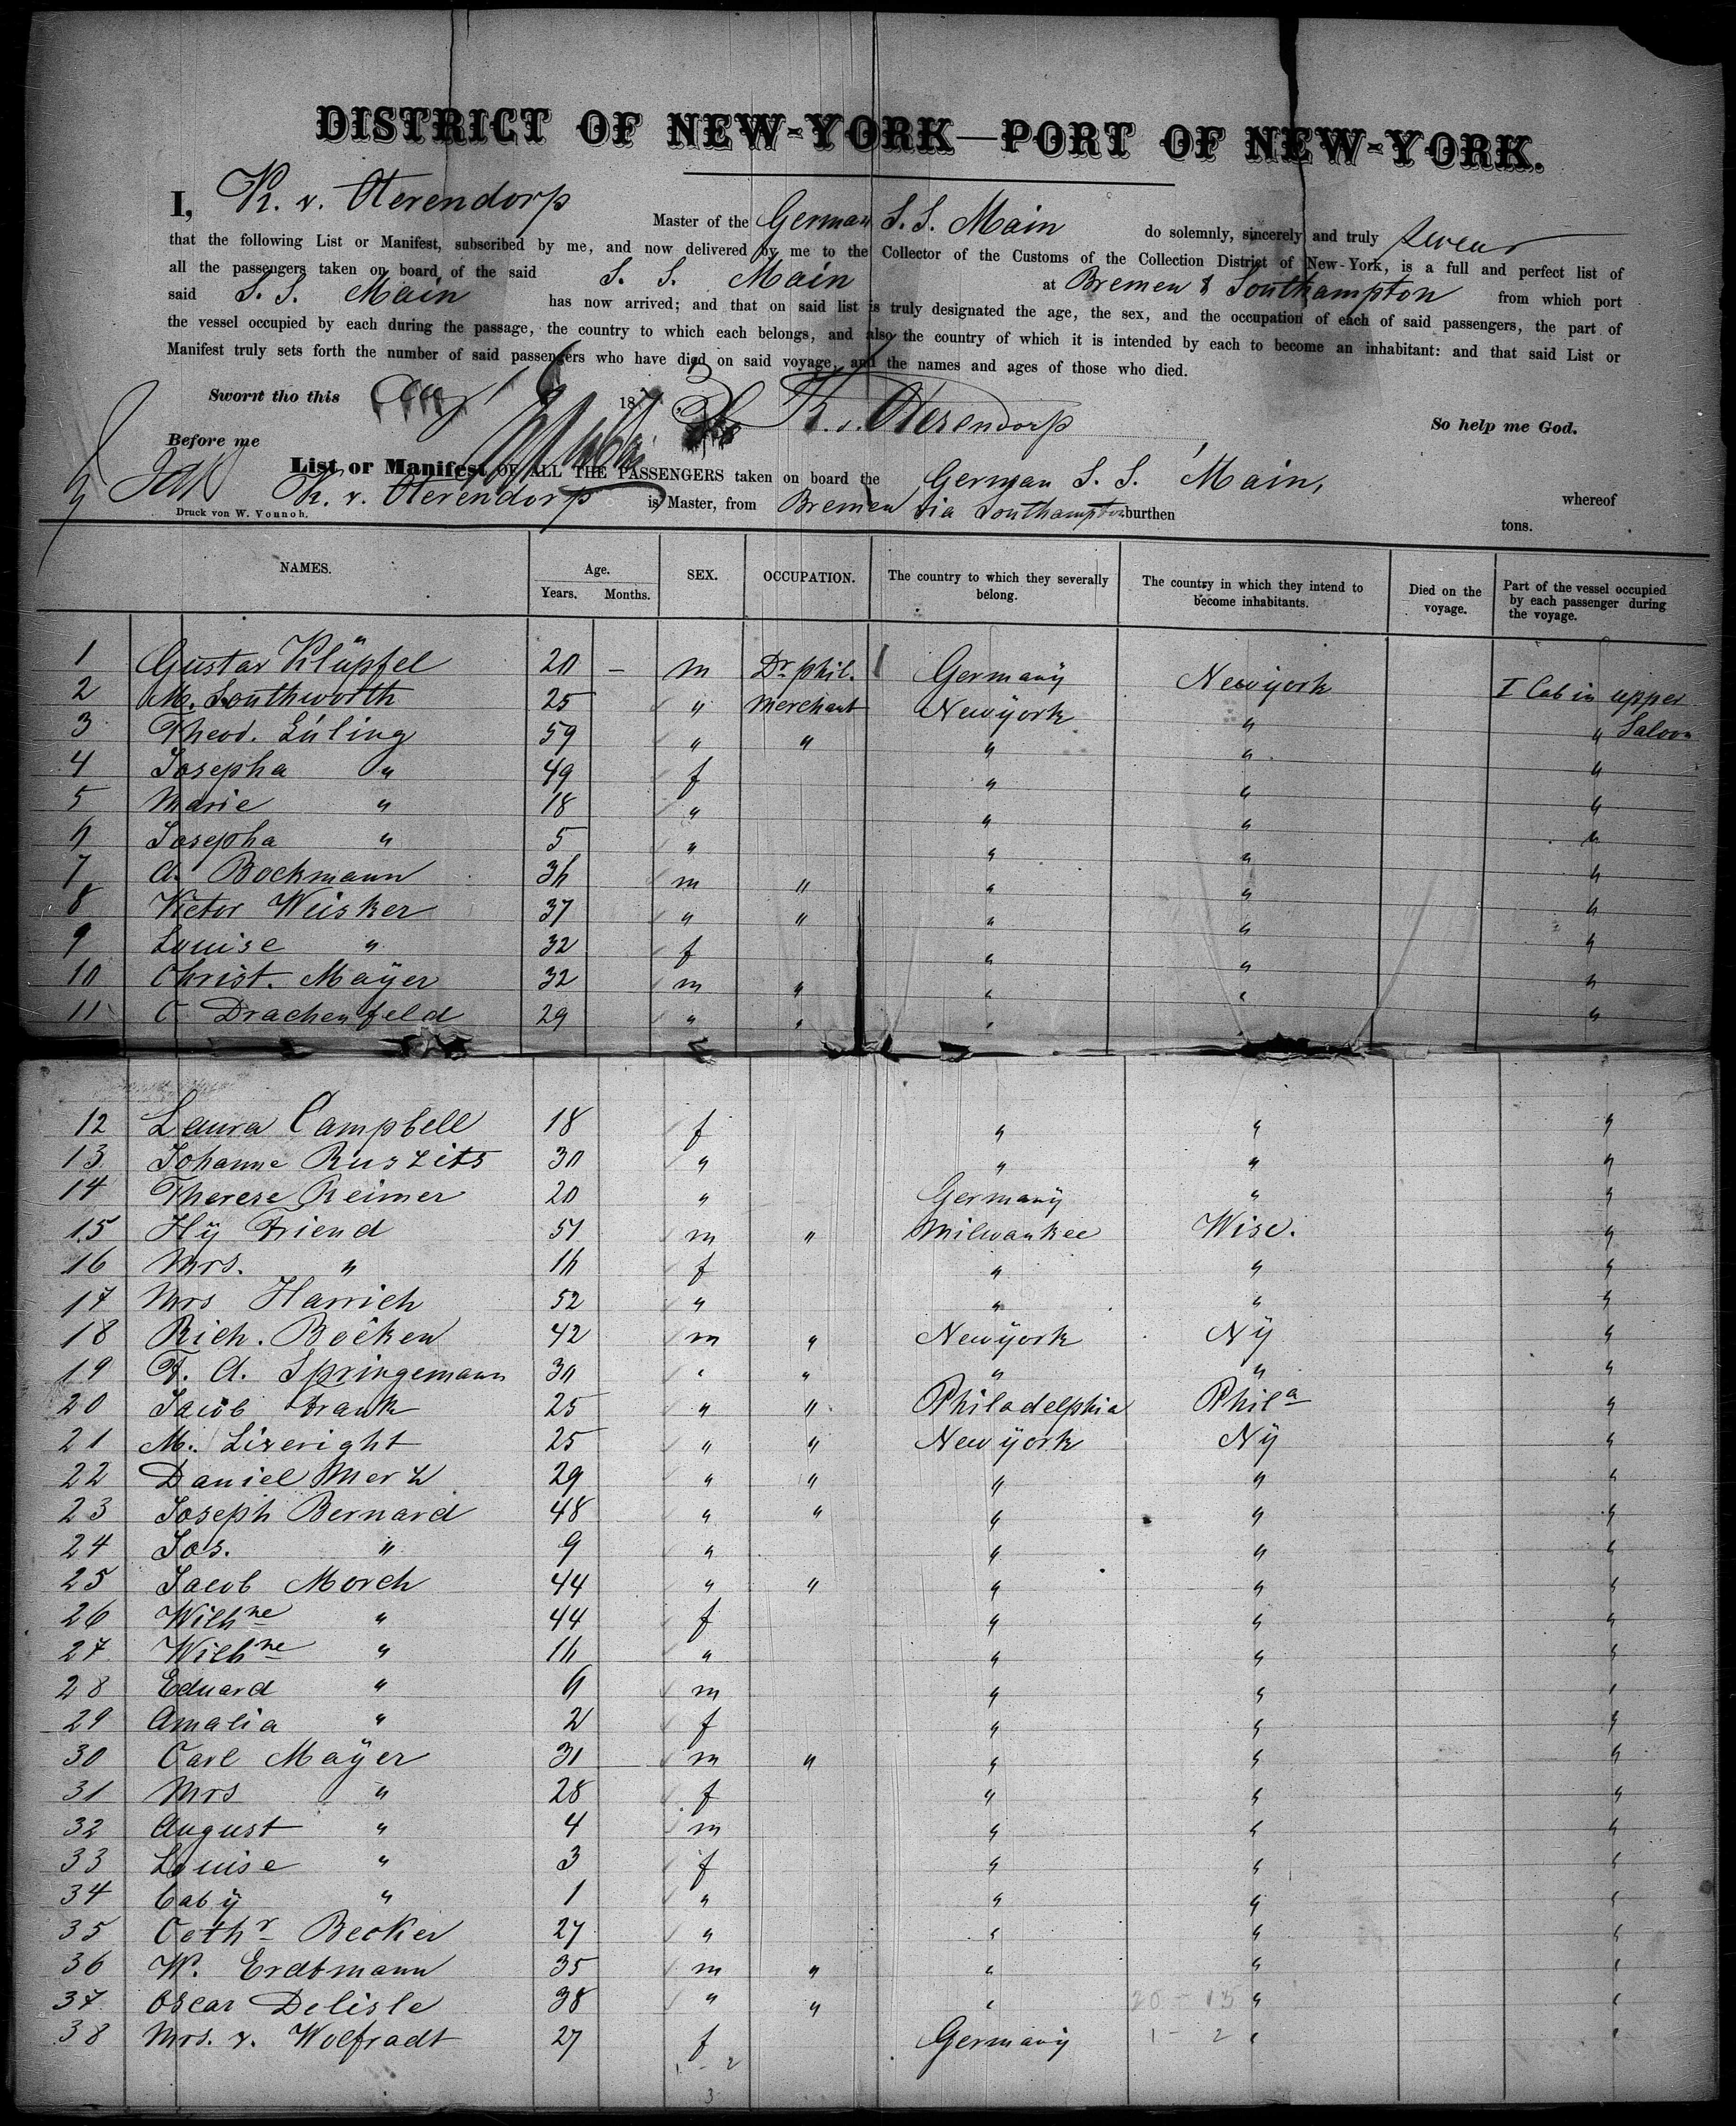 DISTRICT OF NEW-YORK—PORT OF NEW-YORK.
I, K. v. Oterendorp Master of the German S. S. Main do solemnly, sincerely and truly swear
that the following List or Manifest, subscribed by me, and now delivered by me to the Collector of the Customs of the Collection District of New-York, is a full and perfect list of
all the passengers taken on board of the said S. S. Main at Bremen & Southampton from which port
said S. S. Main has now arrived; and that on said list is truly designated the age, the sex, and the occupation of each of said passengers, the part of
the vessel occupied by each during the passage, the country to which each belongs, and also the country of which it is intended by each to become an inhabitant: and that said List or
Manifest truly sets forth the number of said passengers who have died on said voyage, and the names and ages of those who died.
Sworn tho this Aug 187 K. v. Oterendorp So help me God.
Before me
List or Manifest OF ALL THE PASSENGERS taken on board the German S. S. Main, whereof
K. v. Oterendorp is Master, from Bremen via Southampton burthen tons.
Druck von W. Vonnoh.
NAMES. Age. Years. Months. SEX. OCCUPATION. The country to which they severally belong. The country in which they intend to become inhabitants. Died on the voyage. Part of the vessel occupied by each passenger during the voyage.
1 Gustav Klüpfel 20 — m Dr. phil. Germany Newyork I Cabin upper
2 M. Southworth 25 " Merchant Newyork " " Saloon
3 Theod. Eüling 59 " " " " "
4 Josepha " 49 f " " "
5 Marie " 18 " " " "
6 Josepha " 5 " " " "
7 A. Bockmann 36 m " " " "
8 Victor Weisker 37 " " " " "
9 Louise " 32 f " " "
10 Christ. Mayer 32 m " " " "
11 C Drachenfeld 29 " " " "
12 Laura Campbell 18 f " " "
13 Johanne Ruszits 30 " " " "
14 Therese Reimer 20 " Germany " "
15 Hy Friend 51 m " Milwaukee Wisc. "
16 Mrs. " 16 f " " "
17 Mrs Harrich 52 " " " "
18 Rich. Böcken 42 m " Newyork Ny "
19 F. A. Springemann 30 " " " " "
20 Jacob Frank 25 " " Philadelphia Phila "
21 M. Liveright 25 " " Newyork Ny "
22 Daniel Merz 29 " " " " "
23 Joseph Bernard 48 " " " " "
24 Jos. " 9 " " " "
25 Jacob Morch 44 " " " " "
26 Wilhne " 44 f " " "
27 Wilhne " 16 " " " "
28 Eduard " 6 m " " "
29 Amalia " 2 f " " "
30 Carl Mayer 31 m " " " "
31 Mrs " 28 f " " "
32 August " 4 m " " "
33 Louise " 3 f " " "
34 baby " 1 " " " "
35 Cathr Becker 27 " " " "
36 W. Erdtmann 35 m " " " "
37 Oscar Delisle 38 " " " " "
38 Mrs. v. Wolfradt 27 f Germany " "